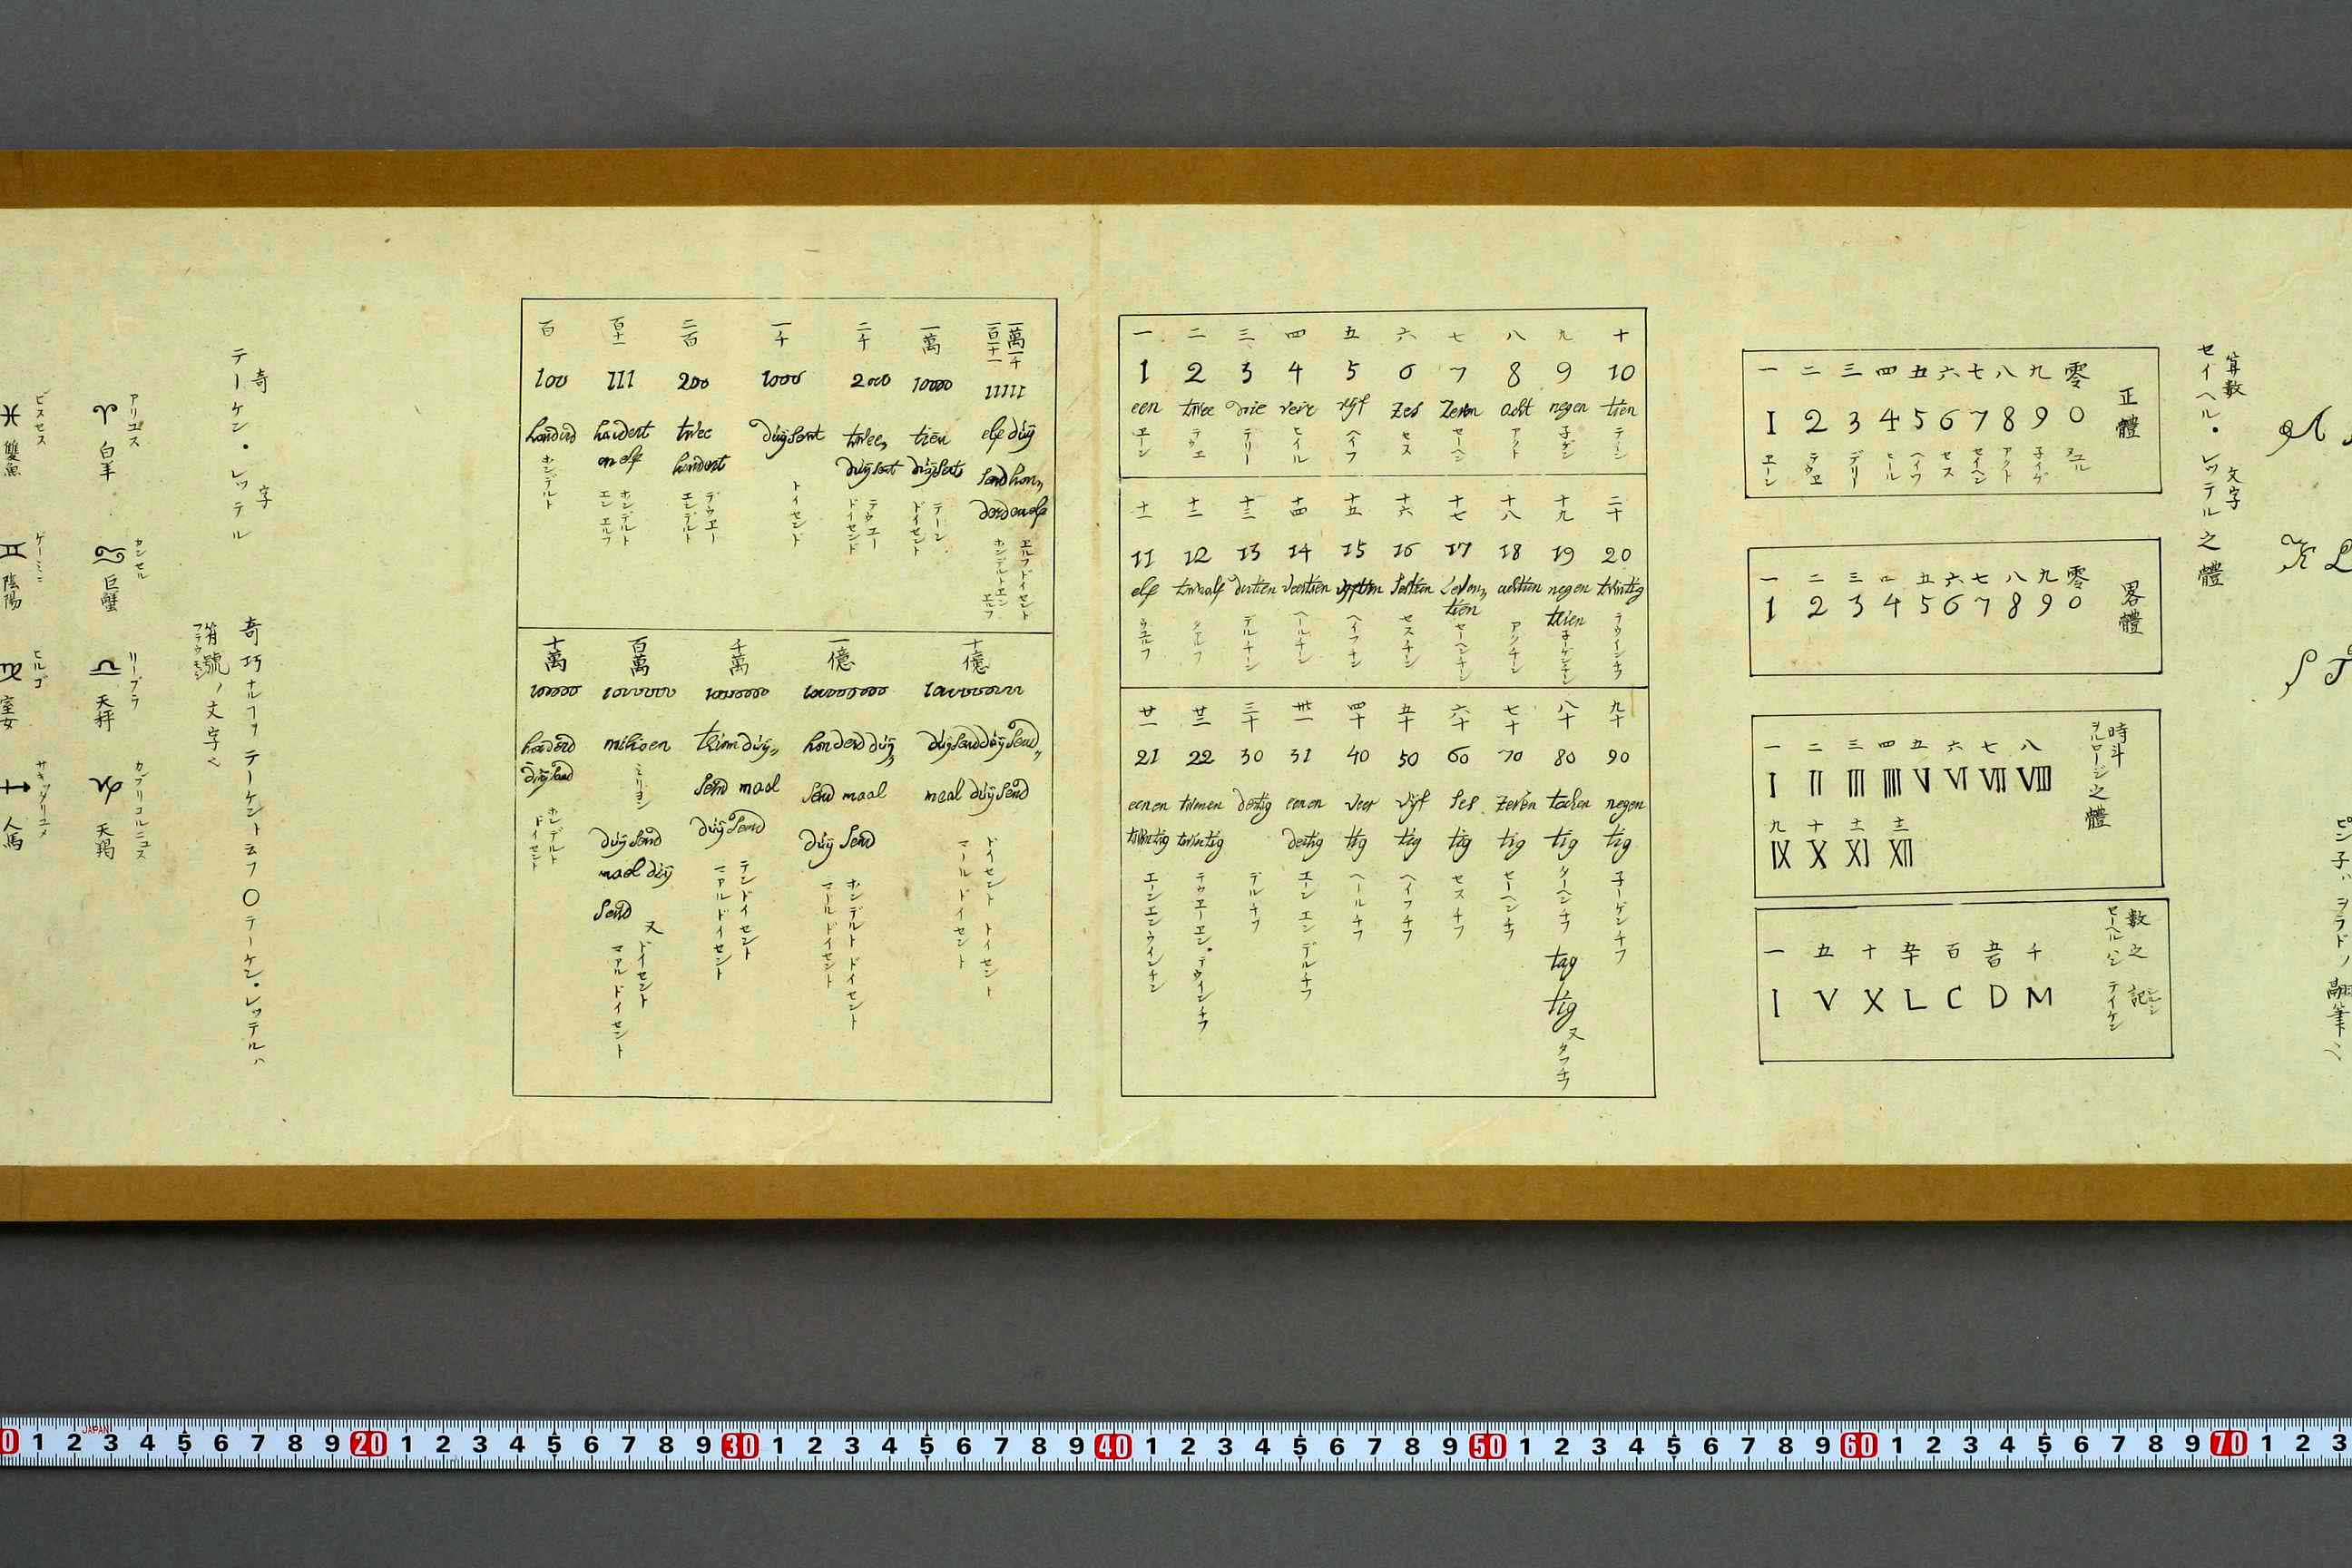 算數 文字
セイヘル・レッテル之體
正體
一 二 三 四 五 六 七 八 九 零
1 2 3 4 5 6 7 8 9 0
ヱーン テウヱ デリー ヒール ヘイフ セス セイヘン アクト 子イゲ ヌユル
畧體
一 二 三 四 五 六 七 八 九 零
1 2 3 4 5 6 7 8 9 0
時斗
ヲルロージ之體
一 二 三 四 五 六 七 八
I II III IIII V VI VII VIII
九 十 十一 十二
IX X XI XII
數之記
一 五 十 五十 百 五百 千
I V X L C D M
一 二 三 四 五 六 七 八 九 十
1 2 3 4 5 6 7 8 9 10
een twee drie veir vÿf zes zeven acht negen tien
ヱーン テウヱ テリー ヒイル ヘイフ セス セーヘン アクト 子ゲン テーン
十一 十二 十三 十四 十五 十六 十七 十八 十九 二十
11 12 13 14 15 16 17 18 19 20
elf twaalf dertien veertien sestien seven, achtien negen twintig
tien tien
デルチーン ヘールチーン ヘイフチン セスチーン セーヘンチーン アクチーン 子ーゲンチーン テウインチフ
廿一 廿二 三十 卅一 四十 五十 六十 七十 八十 九十
21 22 30 31 40 50 60 70 80 90
een en twinen dertig een en veer vÿf ses zeven tachen negen
twintig twintig dertig tig tig tig tig tig tig
エーンエンウインチン テウエーエン・テウインチフ デルチフ エーン エン デルチフ ヘールチフ ヘイフチフ セスチフ セーヘンチフ ターヘンチフ 子ーゲンチフ
tag
tig
又
タフチフ
百 百十一 二百 一千 二千 一萬 一萬一千百十一
100 111 200 1000 2000 10000 11111
honderd hondert twee duÿsent twee, tien elf duÿ
en elf hondert duÿsent duÿsent send hon,
derd en elf
ホンデルト ホンデルト エン エルフ テウヱー ホンデルト トイセンド テウヱー ドイセンド テーン ドイセント エルフドイセント ホンデルトエン エルフ
十萬 百萬 千萬 一億 十億
100000 1000000 10000000 100000000 1000000000
honderd milioen tien duÿ,, honderd duÿ,, duÿsend duÿsend,,
duÿsend send maal send maal maal duÿsend
ミリヨン
duÿsend duÿsend duÿ send
maal duÿ
send
ホンデルト ドイセント
又 ドイセント マアル ドイセント
テンドイセント マアル ドイセント
ホンデルト ドイセント マール ドイセント
ドイセント トイセント マール ドイセント
奇 字
テーケン・レッテル
奇巧ナルヿヲ テーケント云フ〇テーケン・レッテルハ
符號ノ文字也
アリユス
♈ 白羊
カンセル
♋ 巨蟹
リーブラ
♎ 天秤
カプリコルニユス
♑ 天羯
ピスセス
♓ 雙魚
ゲーミニ
♊ 陰陽
ヒルゴ
♍ 室女
サキッタリユス
人馬
0 1 2 3 4 5 6 7 8 9 20 1 2 3 4 5 6 7 8 9 30 1 2 3 4 5 6 7 8 9 40 1 2 3 4 5 6 7 8 9 50 1 2 3 4 5 6 7 8 9 60 1 2 3 4 5 6 7 8 9 70 1 2 3
JAPAN